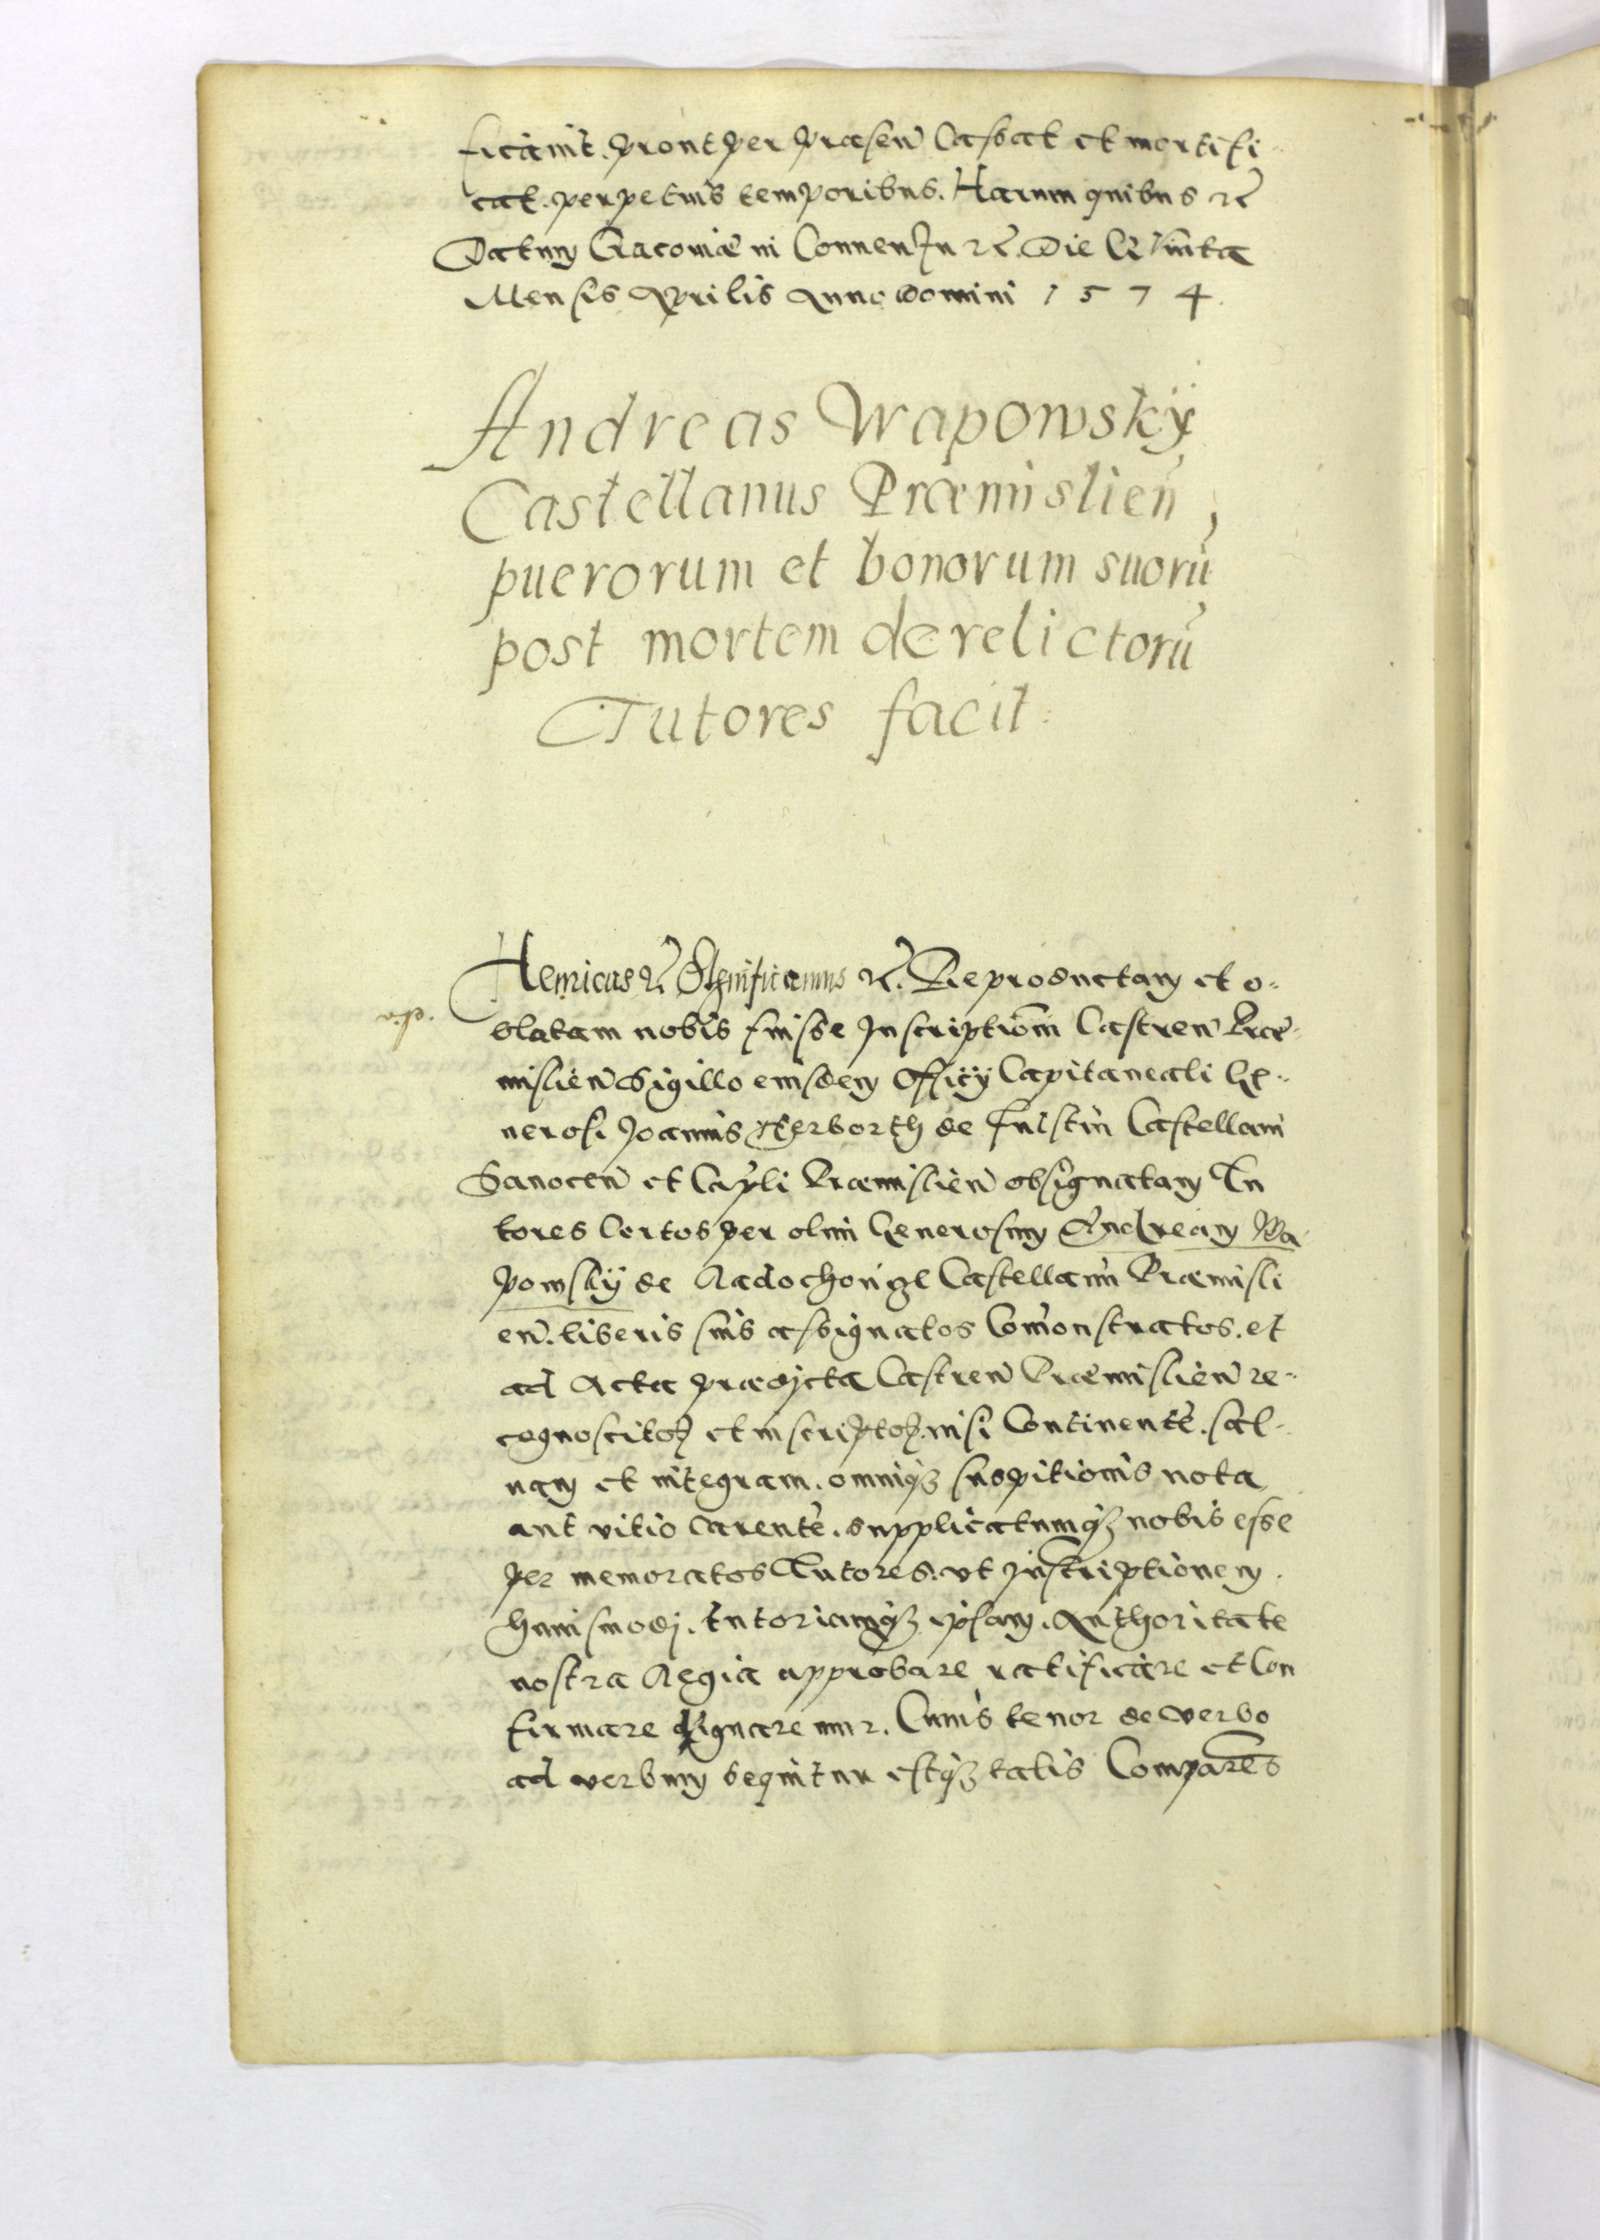 ficavit. prout per præsen̄ Cassat et mortifi-
cat. perpetuis temporibus. Harum quibus etc
Datum Cracoviæ in Conven Jn etc. Die Quinta
Mensis Aprilis Anno Domini 1574.
Andreas Wapowskÿ
Castellanus Præmislien̄,
puerorum et bonorum suorū
post mortem derelictorū
Tutores facit:
Henricus etc Significamus etc. Reproductam et o-
blatam nobis fuisse Jnscriptiōm Castren̄ Præ-
mislien̄ Sigillo eiusdem Officÿ Capitaneali Ge-
nerosi Joannis Herborth de Fulstin Castellani
Sanocen̄ et Cap̄li Præmislien̄ obsignatam Tu
tores Certos per olim Generosum Andream Wa
powskÿ de Radochonÿze Castellanū Præmisli
en̄. liberis suis assignatos Com̄onstratos. et
ad Acta prædicta Castren̄ Præmislien̄ re-
cognoscitoꝶ et inscriptoꝶ. nisi Continentē. sal-
vam et integram. omniqꝫ suspitionis nota
aut vitio carentē. supplicatumqꝫ nobis esse
per memoratos Tutores. ut Jnscriptionem
huiusmodj. tutoriamqꝫ ipsam. Authoritate
nostra Regia approbare ratificare et Con
firmare dignaremur. Cuius tenor de verbo
ad verbum sequitur estqꝫ talis Compares